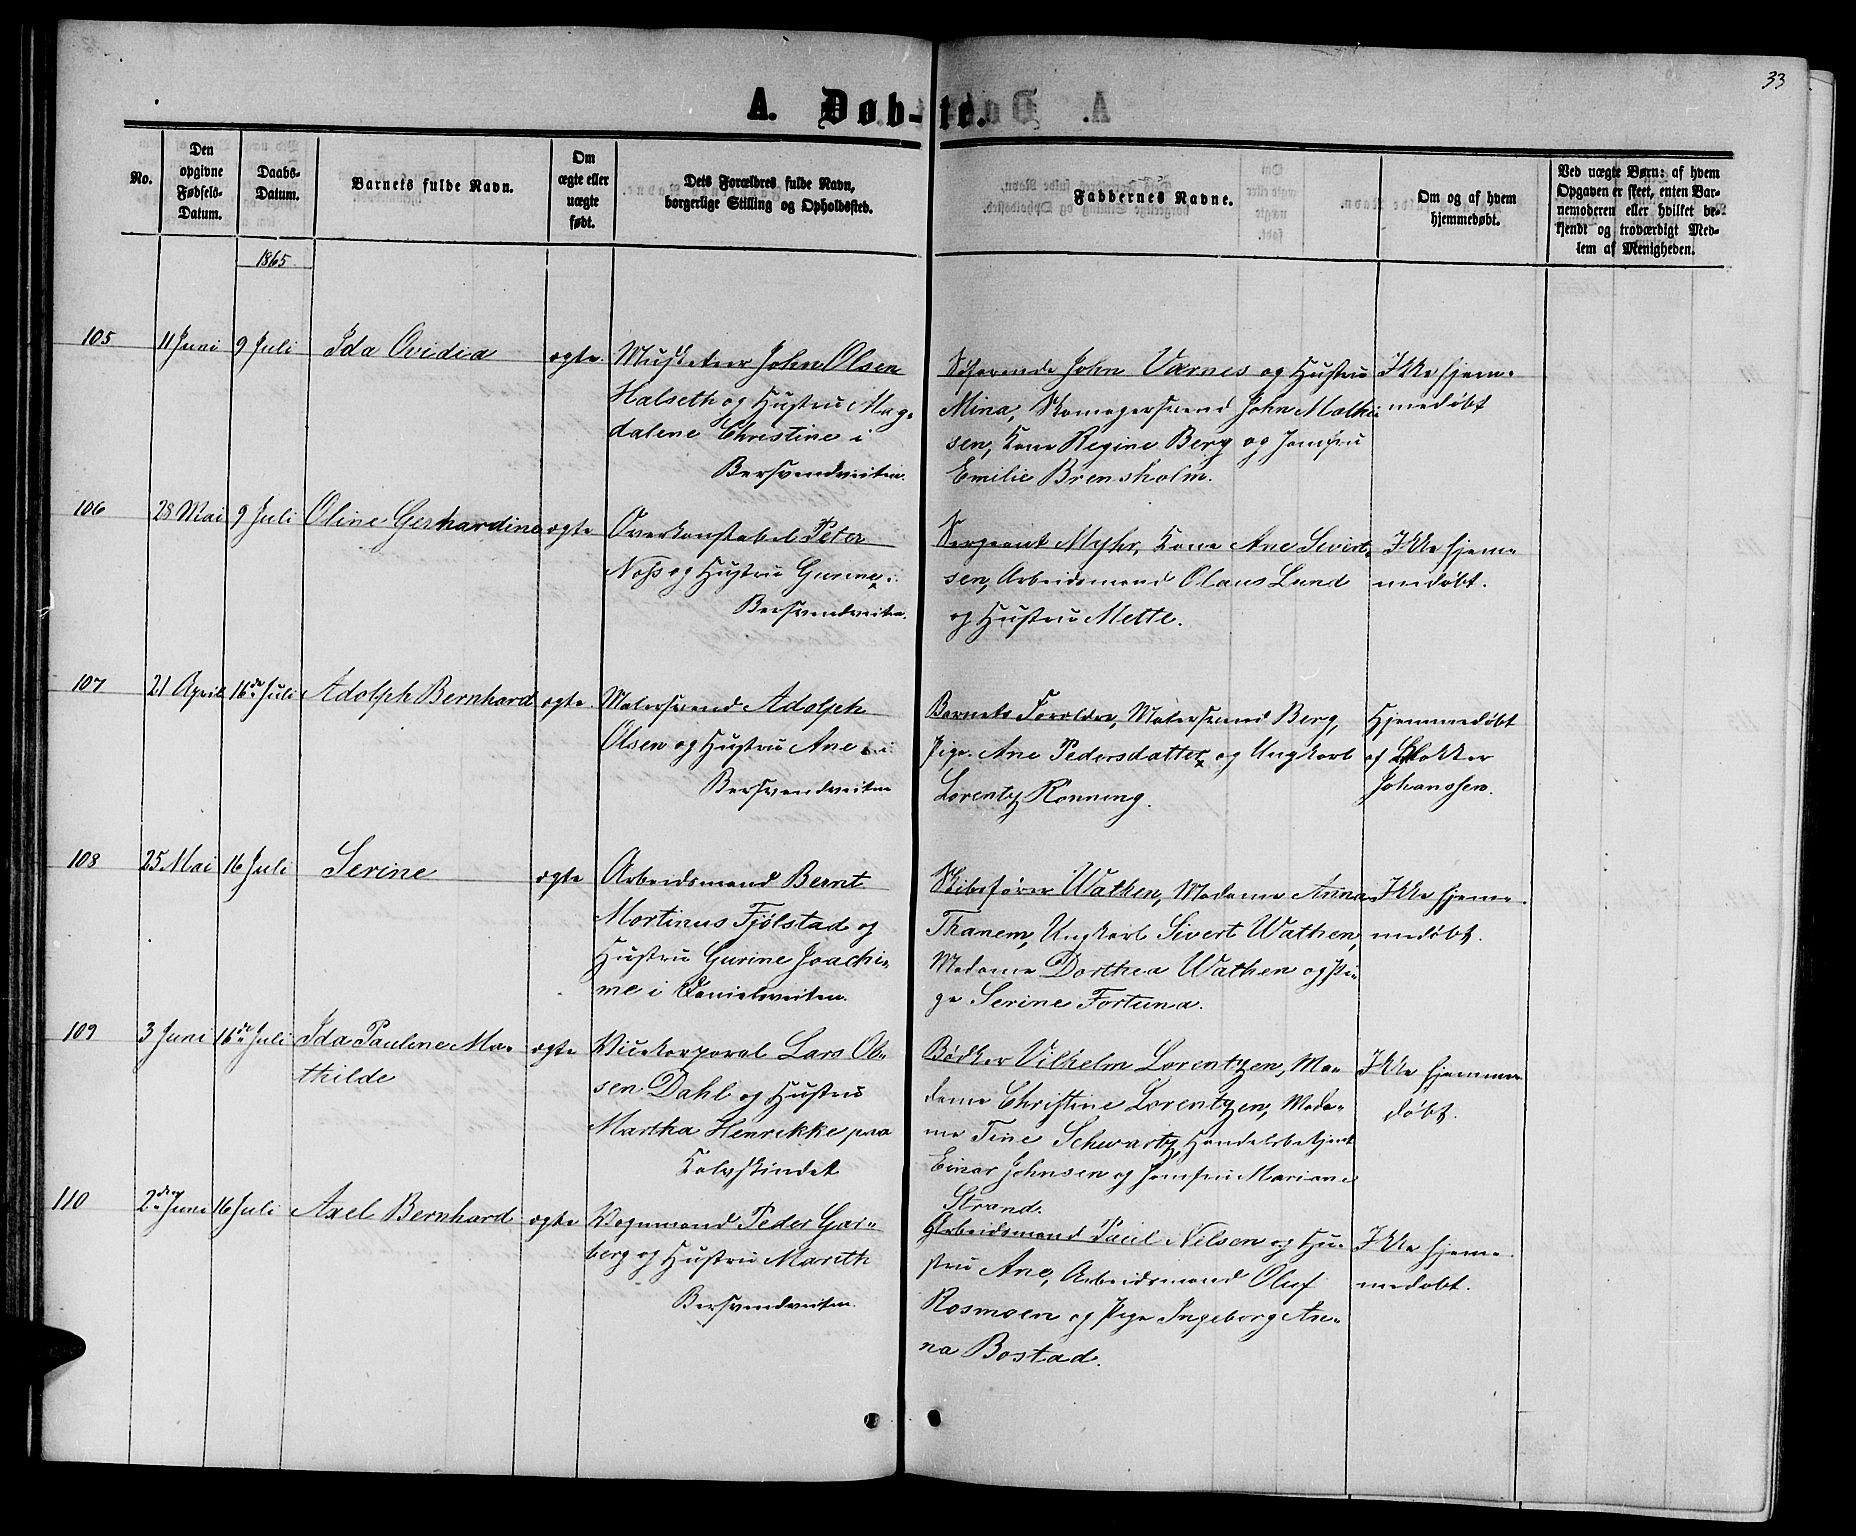 33
A. Døb-te.
No.
Den opgivne Fødsels-Datum.
Daabs-Datum.
Barnets fulde Navn.
Om ægte eller uægte født.
Dets Forældres fulde Navn,
borgerlige Stilling og Opholdssted.
Faddernes Navne.
Om og af hvem
hjemmedøbt.
Ved uægte Børn: af hvem
Opgaven er skeet, enten Bar-
nemoderen eller hvilket be-
kjendt og troværdigt Med-
lem af Menigheden.
1865
105 11 Juni 9 Juli Ida Ovidia ægte.
Musketeer John Olsen
Halseth og Hustru Mag-
dalene Christine i
Bersvendveiten.
Søfarende John Værnes og Hustru
Mina, Skomagersvend John Mathi
sen, Kone Regine Berg og Jomfru
Emilie Brensholm.
Ikke hjem-
medøbt
106 28 Mai 9 Juli Oline Gerhardine ægte
Overkonstabel Peter
Noss og Hustru Gurine i
Bersvendveiten.
Sergeant Myhr, Kone Ane Sivert-
sen, Arbeidsmand Olaus Lund
og Hustru Mette.
Ikke hjem-
medøbt.
107 21 April 16de Juli Adolph Bernhard ægte.
Malersvend Adolph
Olsen og Hustru Ane i
Bersvendveiten
Barnets Forældre, Malersvend Berg,
Pige Ane Pedersdatter og Ungkarl
Lorentz Rønning.
Hjemmedøbt
af Klokker
Johanssen.
108 25 Mai 16 Juli Serine ægte
Arbeidsmand Bernt
Martinus Fjølstad og
Hustru Gurine Joachi-
me i Danielsveiten.
Skibsfører Wathen, Madame Anna
Thanem, Ungkarl Sivert Wathen,
Madame Dorthea Wathen og Pi-
ge Serine Fortuna.
Ikke hjem-
medøbt.
109 3 Juni 16de Juli Ida Pauline Ma-
thilde
ægte
Vicekorporal Lars Ol-
sen Dahl og Hustru
Martha Henrikke paa
Kalvskindet
Bødker Vilhelm Lorentzen, Ma-
dame Christine Lorentzen, Mada-
me Tine Schwartz, Handelsbetjent
Einar Johnsen og Jomfru Mariane
Strand.
Ikke hjemme-
døbt.
110 2den Juni 16 Juli Axel Bernhard ægte
Vognmand Peder Gar-
berg og Hustru Mareth
Bersvendveiten.
Arbeidsmand Paul Nilsen og Hu-
stru Ane, Arbeidsmand Oluf
Rosmoen og Pige Ingeborg An-
na Bostad.
Ikke hjem-
medøbt.